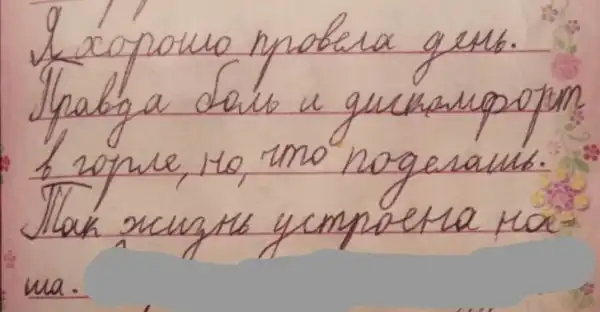 Я хорошо провела день.
Правда боль и дискомфорт
в горле, но, что поделашь.
Так жизнь устроена на-
ша.